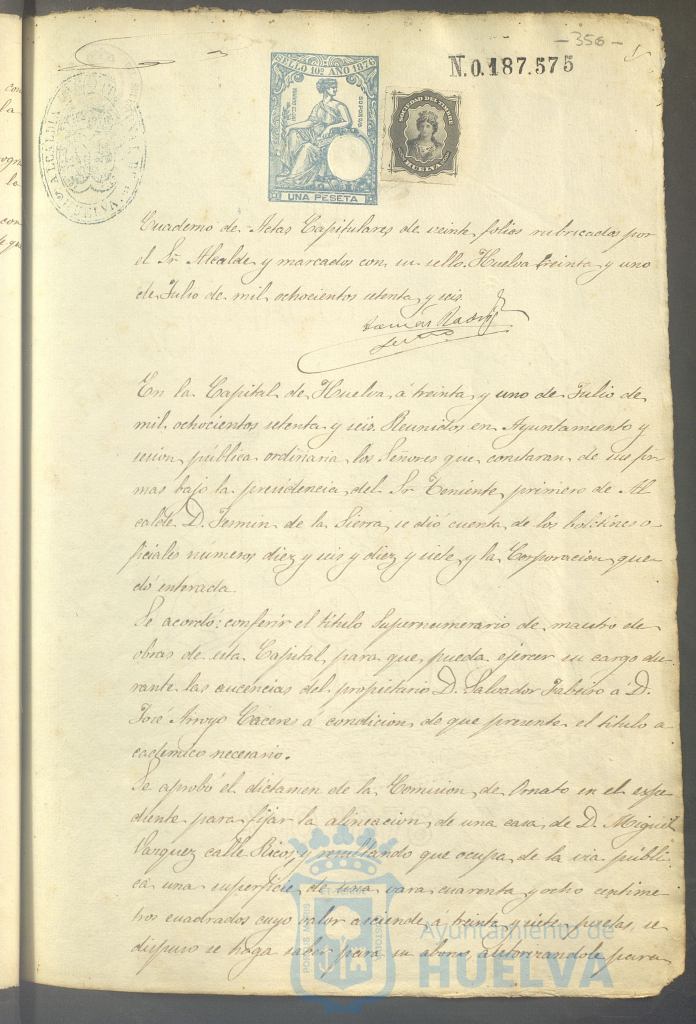 - 356 -
SELLO 10º AÑO 1876
N.0.187.575
SOCIEDAD DEL TIMBRE
HUELVA
UNA PESETA
ALCALDIA
HUELVA
Cuaderno de Actas Capitulares de veinte folios rubricados por
el Sr. Alcalde y marcados con su sello. Huelva treinta y uno
de Julio de mil ochocientos setenta y seis.
En la Capital de Huelva, á treinta y uno de Julio de
mil ochocientos setenta y seis. Reunidos en Ayuntamiento y
sesion pública ordinaria los Señores que constaran de sus fir
mas bajo la presidencia del Sr. Teniente primero de Al
calde D. Fermin de la Sierra, se dió cuenta de los boletines o
ficiales números diez y seis y diez y siete y la Corporacion que
dó enterada.
Se acordó: conferir el titulo Supernumerario de maestro de
obras de esta Capital, para que pueda ejercer su cargo du
rante las aucencias del propietario D. Salvador a D.
José Arroyo Cáceres á condicion de que presente el titulo a
cadémico necesario.
Se aprobó el dictamen de la Comision de Ornato en el espe
diente para fijar la alineacion de una casa de D. Miguel
Vazquez calle Ricos, y resultando que ocupa de la via públi
ca una superficie de una vara cuarenta y ocho centime
tros cuadrados cuyo valor asciende á treinta y siete pesetas, se
dispuso se haga saber para su abono, autorizandole para
Ayuntamiento de
HUELVA